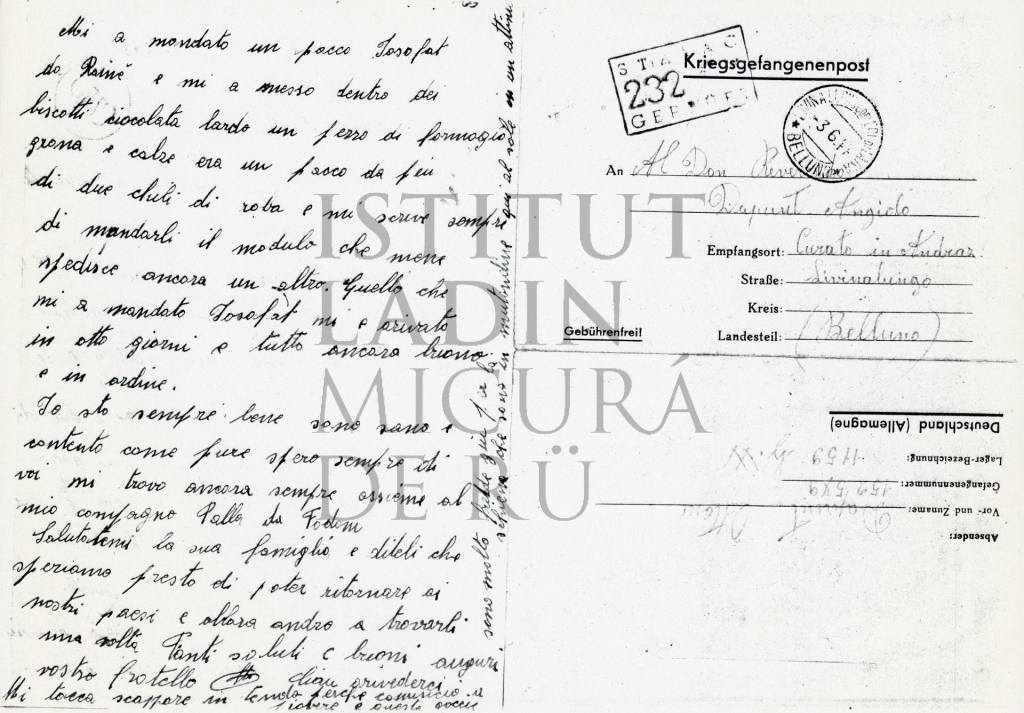 Mi a mandato un pacco Iosofat
da Rainé e mi a messo dentro dei
biscotti ciocolata lardo un pezzo di formagio
grana e calze era un pacco da piu
di due chili di roba e mi scrive sempre
di mandarli il modulo che mene
spedisce ancora un altro. Quello che
mi a mandato Iosofat mi e arivato
in otto giorni e tutto ancora buono
e in ordine.
Io sto sempre bene sono sano e
contento come pure spero sempre di
voi mi trovo ancora sempre assieme al
mio compagno Palla da Fodom
Salutatemi la sua famiglia e diteli che
speriamo presto di poter ritornare ai
nostri paesi e allora andro a trovarli
una volta Tanti saluti e buoni auguri
vostro fratello ciau arivederci
Mi tocca scappare in tenda perche comincio a
piovere e queste gocce
sono molto fredde qui per la
schiena che sono in mutandine qui al sole in un attimo
STALAG
232
GEPRÜFT
Kriegsgefangenenpost
BELLUNO
An Al Don
Dapunt Angelo
Empfangsort: Curato in Andraz
Straße: Livinalongo
Kreis:
Landesteil: (Belluno)
Gebührenfrei!
Absender:
Vor- und Zuname: Dapunt
Gefangenennummer: 152549
Lager-Bezeichnung: 1159
Deutschland (Allemagne)
ISTITUT
LADIN
MICURÁ
DE RÜ